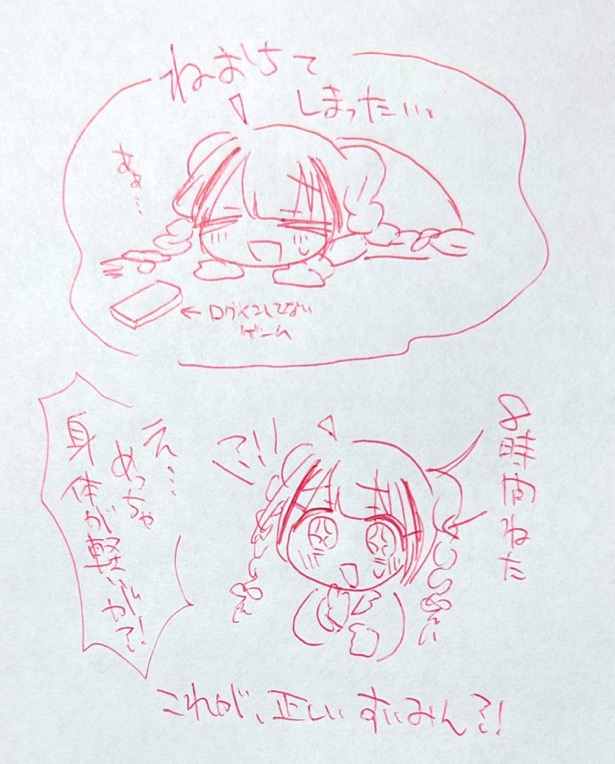 ねおちて
しまった…。
あぁ…
←ログインしてない
ゲーム
8時間ねた
?!
え…
めっちゃ
身体が軽いが?!
これが、正しいすいみん?!